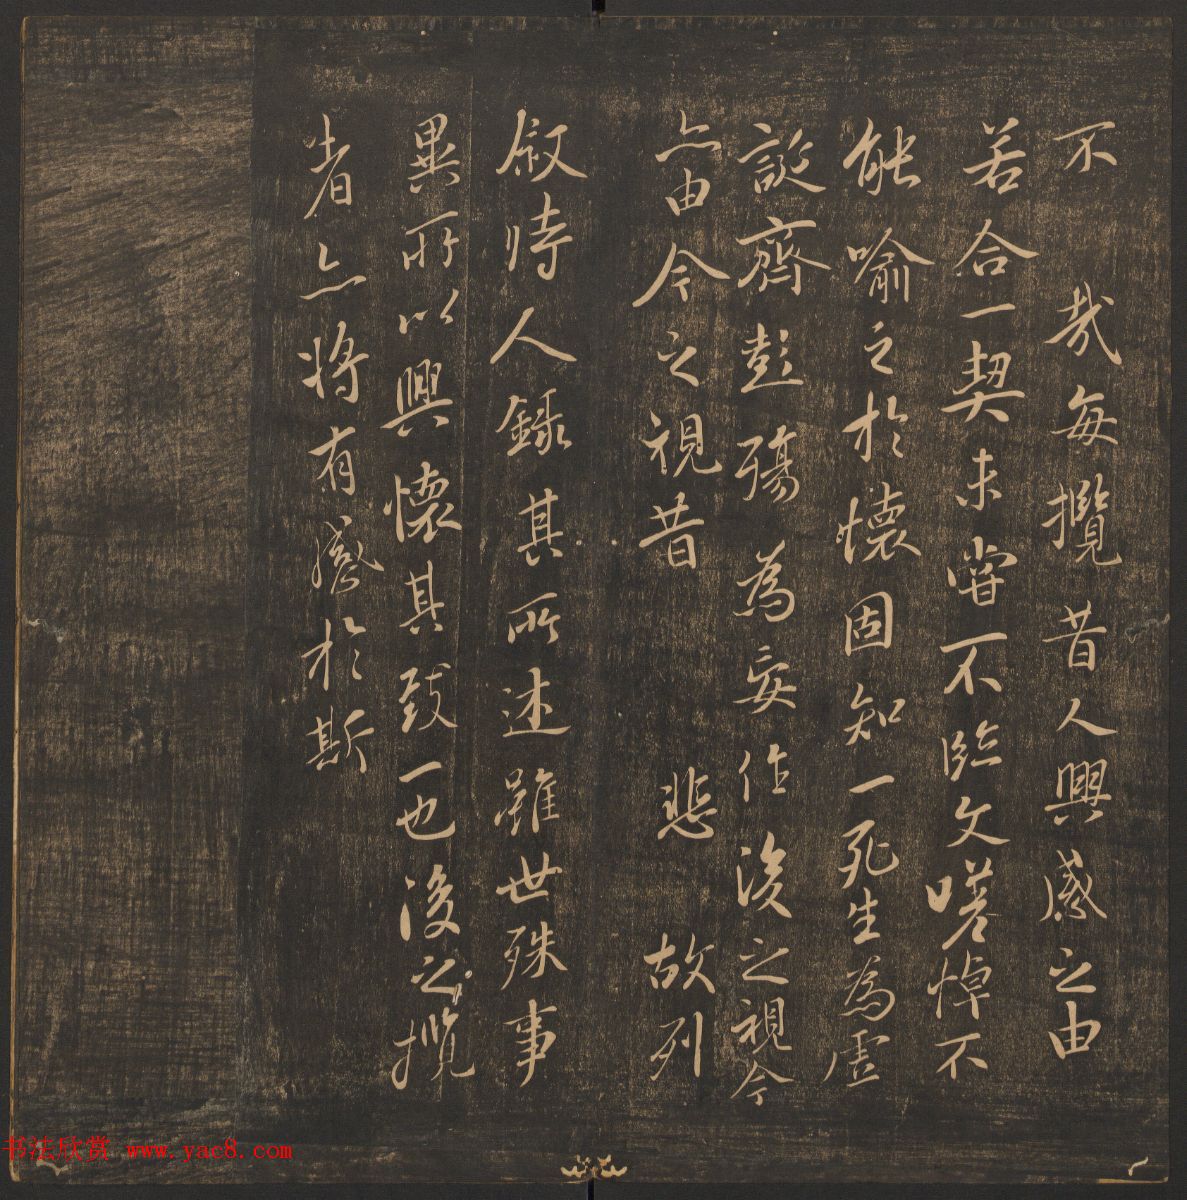 不 哉每攬昔人興感之由
若合一契未甞不臨文嗟悼不
能喻之於懷固知一死生為虛
誕齊彭殤為妄作後之視今
亦由今之視昔 悲 故列
叙時人錄其所述雖世殊事
異所以興懷其致一也後之攬
者亦將有感於斯
书法欣赏 www.yac8.com